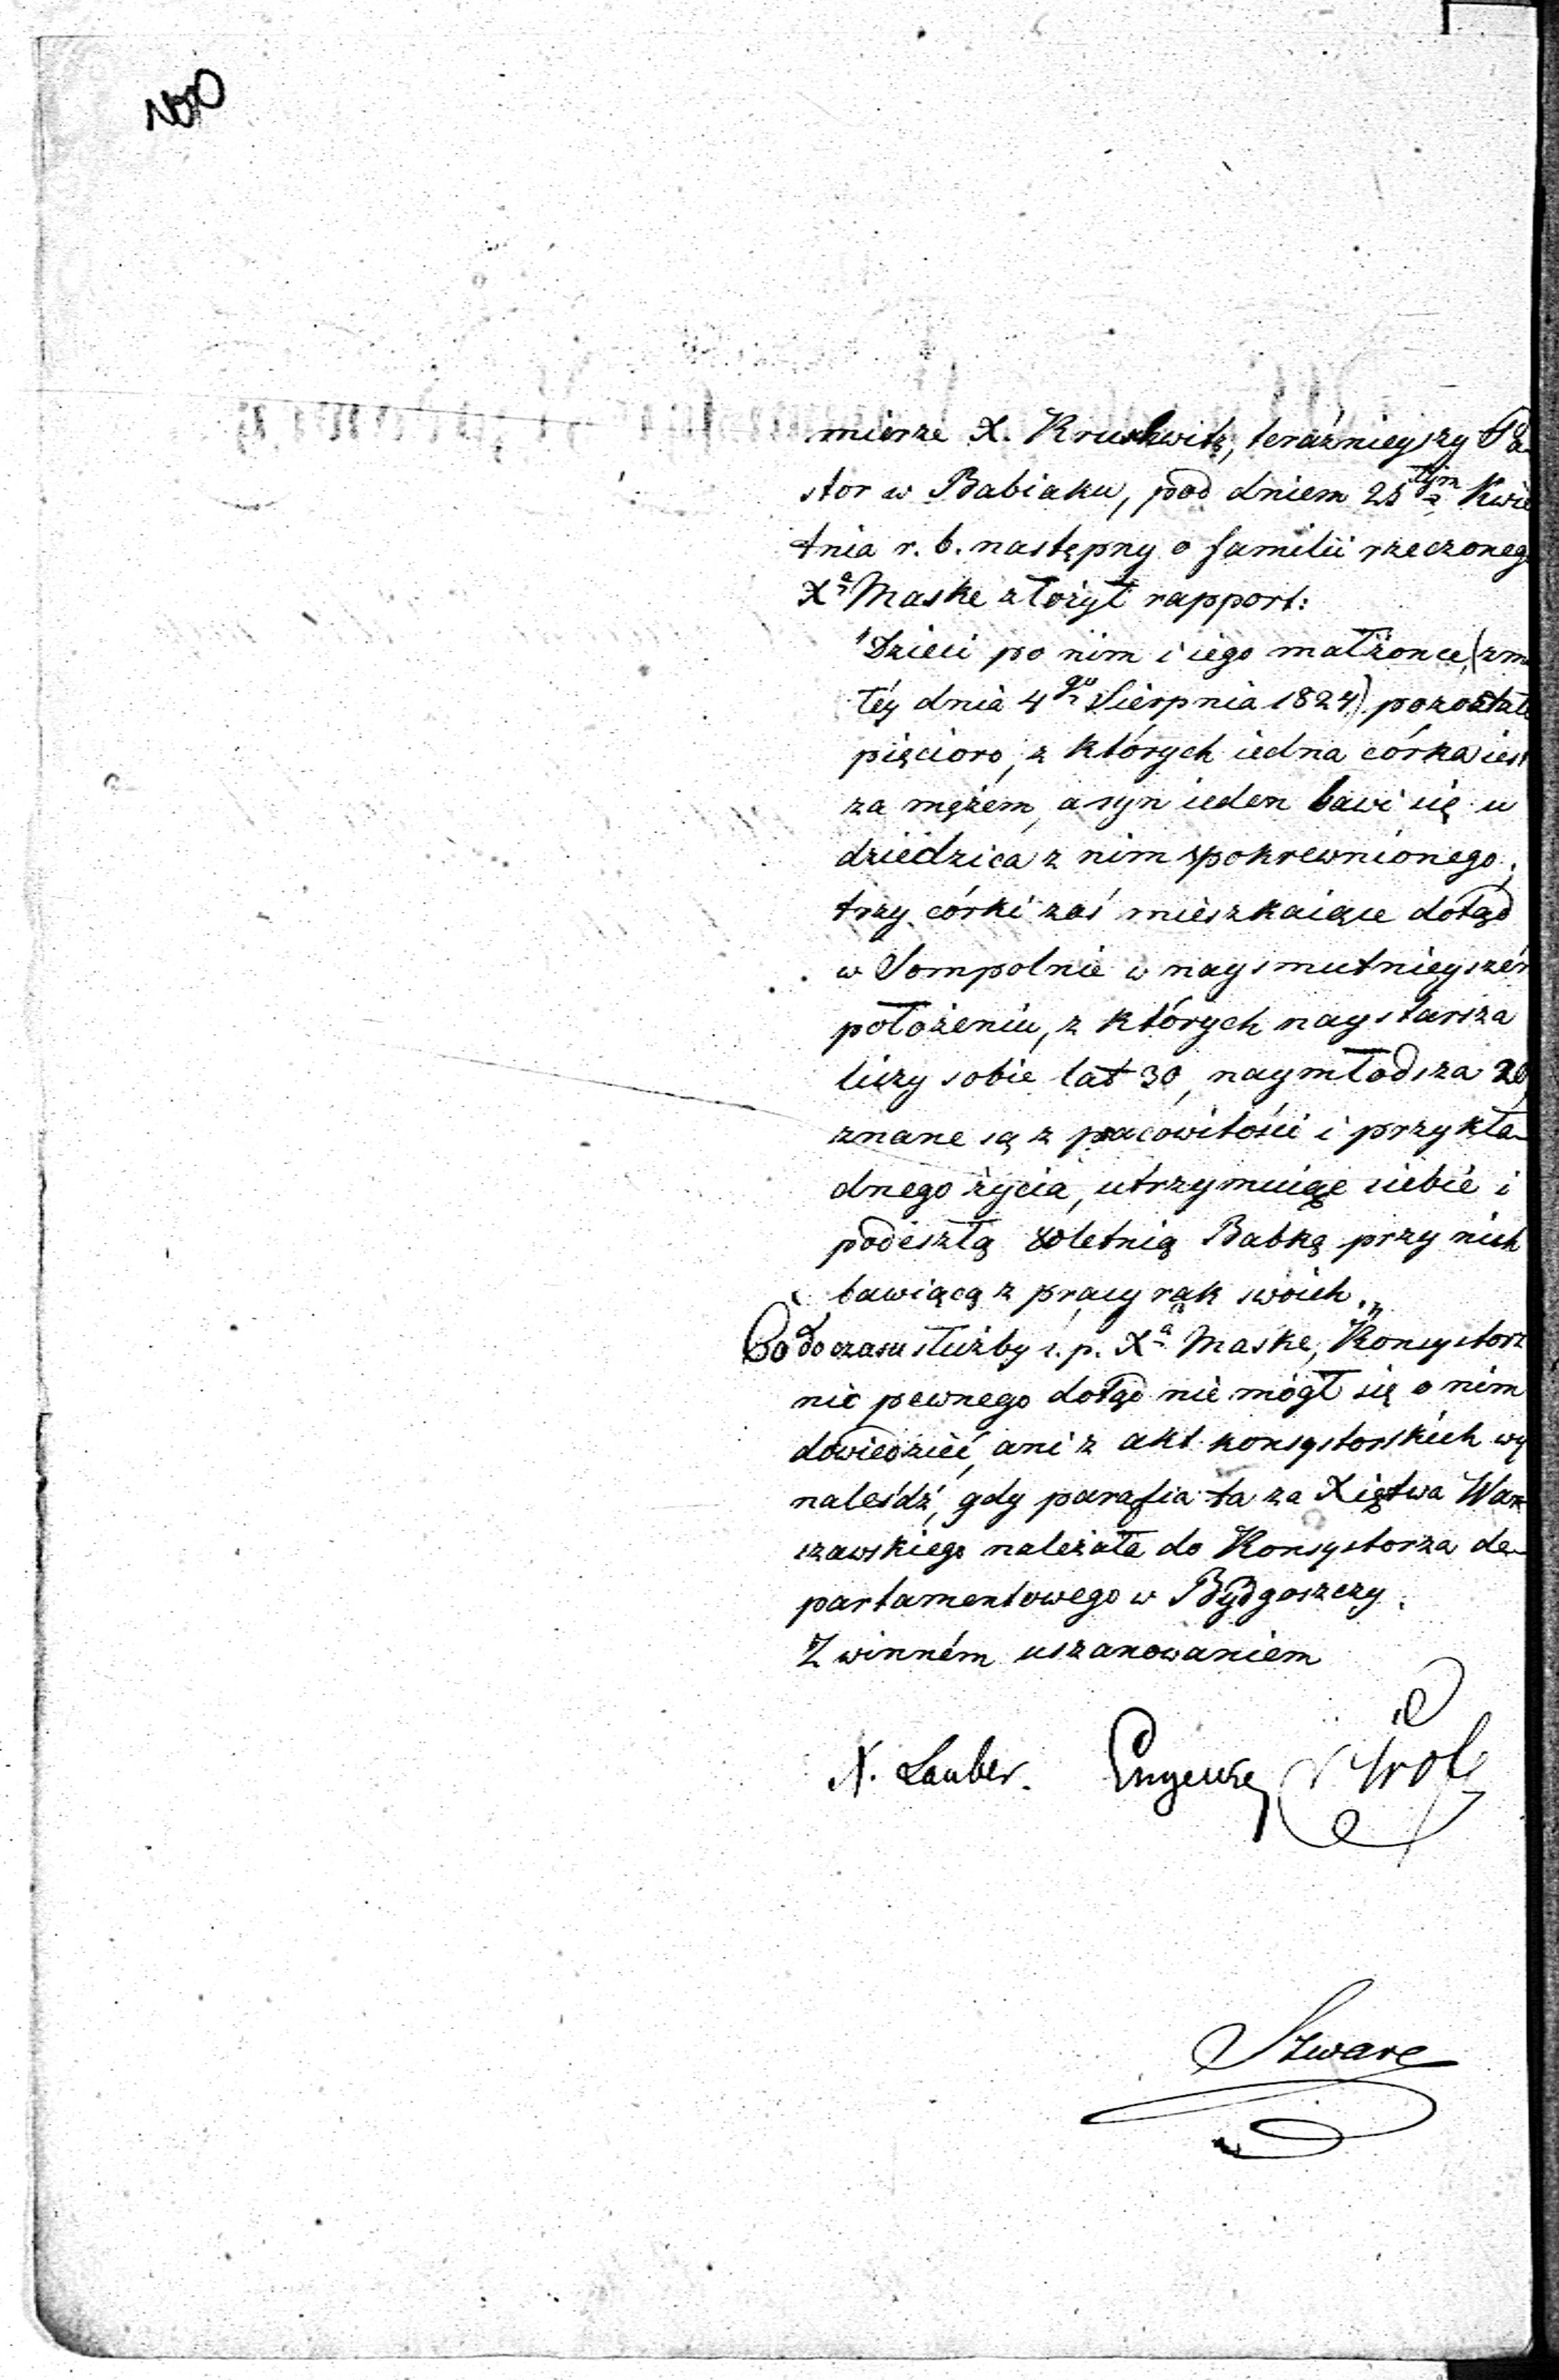 mierze X. Kruschwitz, teráznieyszy Pa-
stor w Babiaku, pod dniem 25tym Kwie
tnia r. b. następny o familii rzeczoneg
Xa Maske złożył rapport:
"Dzieci po nim i iego małżonce, (zm
łéy dnia 4go Sierpnia 1824) pozostałe
pięcioro, z których iedna córka iest
za mężem, a syn ieden bawi się u
dziedzica z nim spokrewnionego;
trzy córki zaś mieszkaiące dotąd
w Sompolnie w naysmutnieyszém
położeniu, z których naystarsza
liczy sobie lat 30, naymłodsza 20,
znane są z pracowitości i przykła-
dnego życia, utrzymuiąc siebie i
podeszłą 80letnią Babkę przy nich
bawiącą z pracy rąk swoich."
Co do czasu służby ś. p. Xa Maske, Konsystorz
nic pewnego dotąd nie mógł się o nim
dowiedzieć, ani z akt konsystorskich wy
naleśdź, gdy parafia ta za Xięstwa War
szawskiego należała do Konsystorza de-
partamentowego w Bydgoszczy.
Z winném uszanowaniem
X. Lauber.
Szwarc